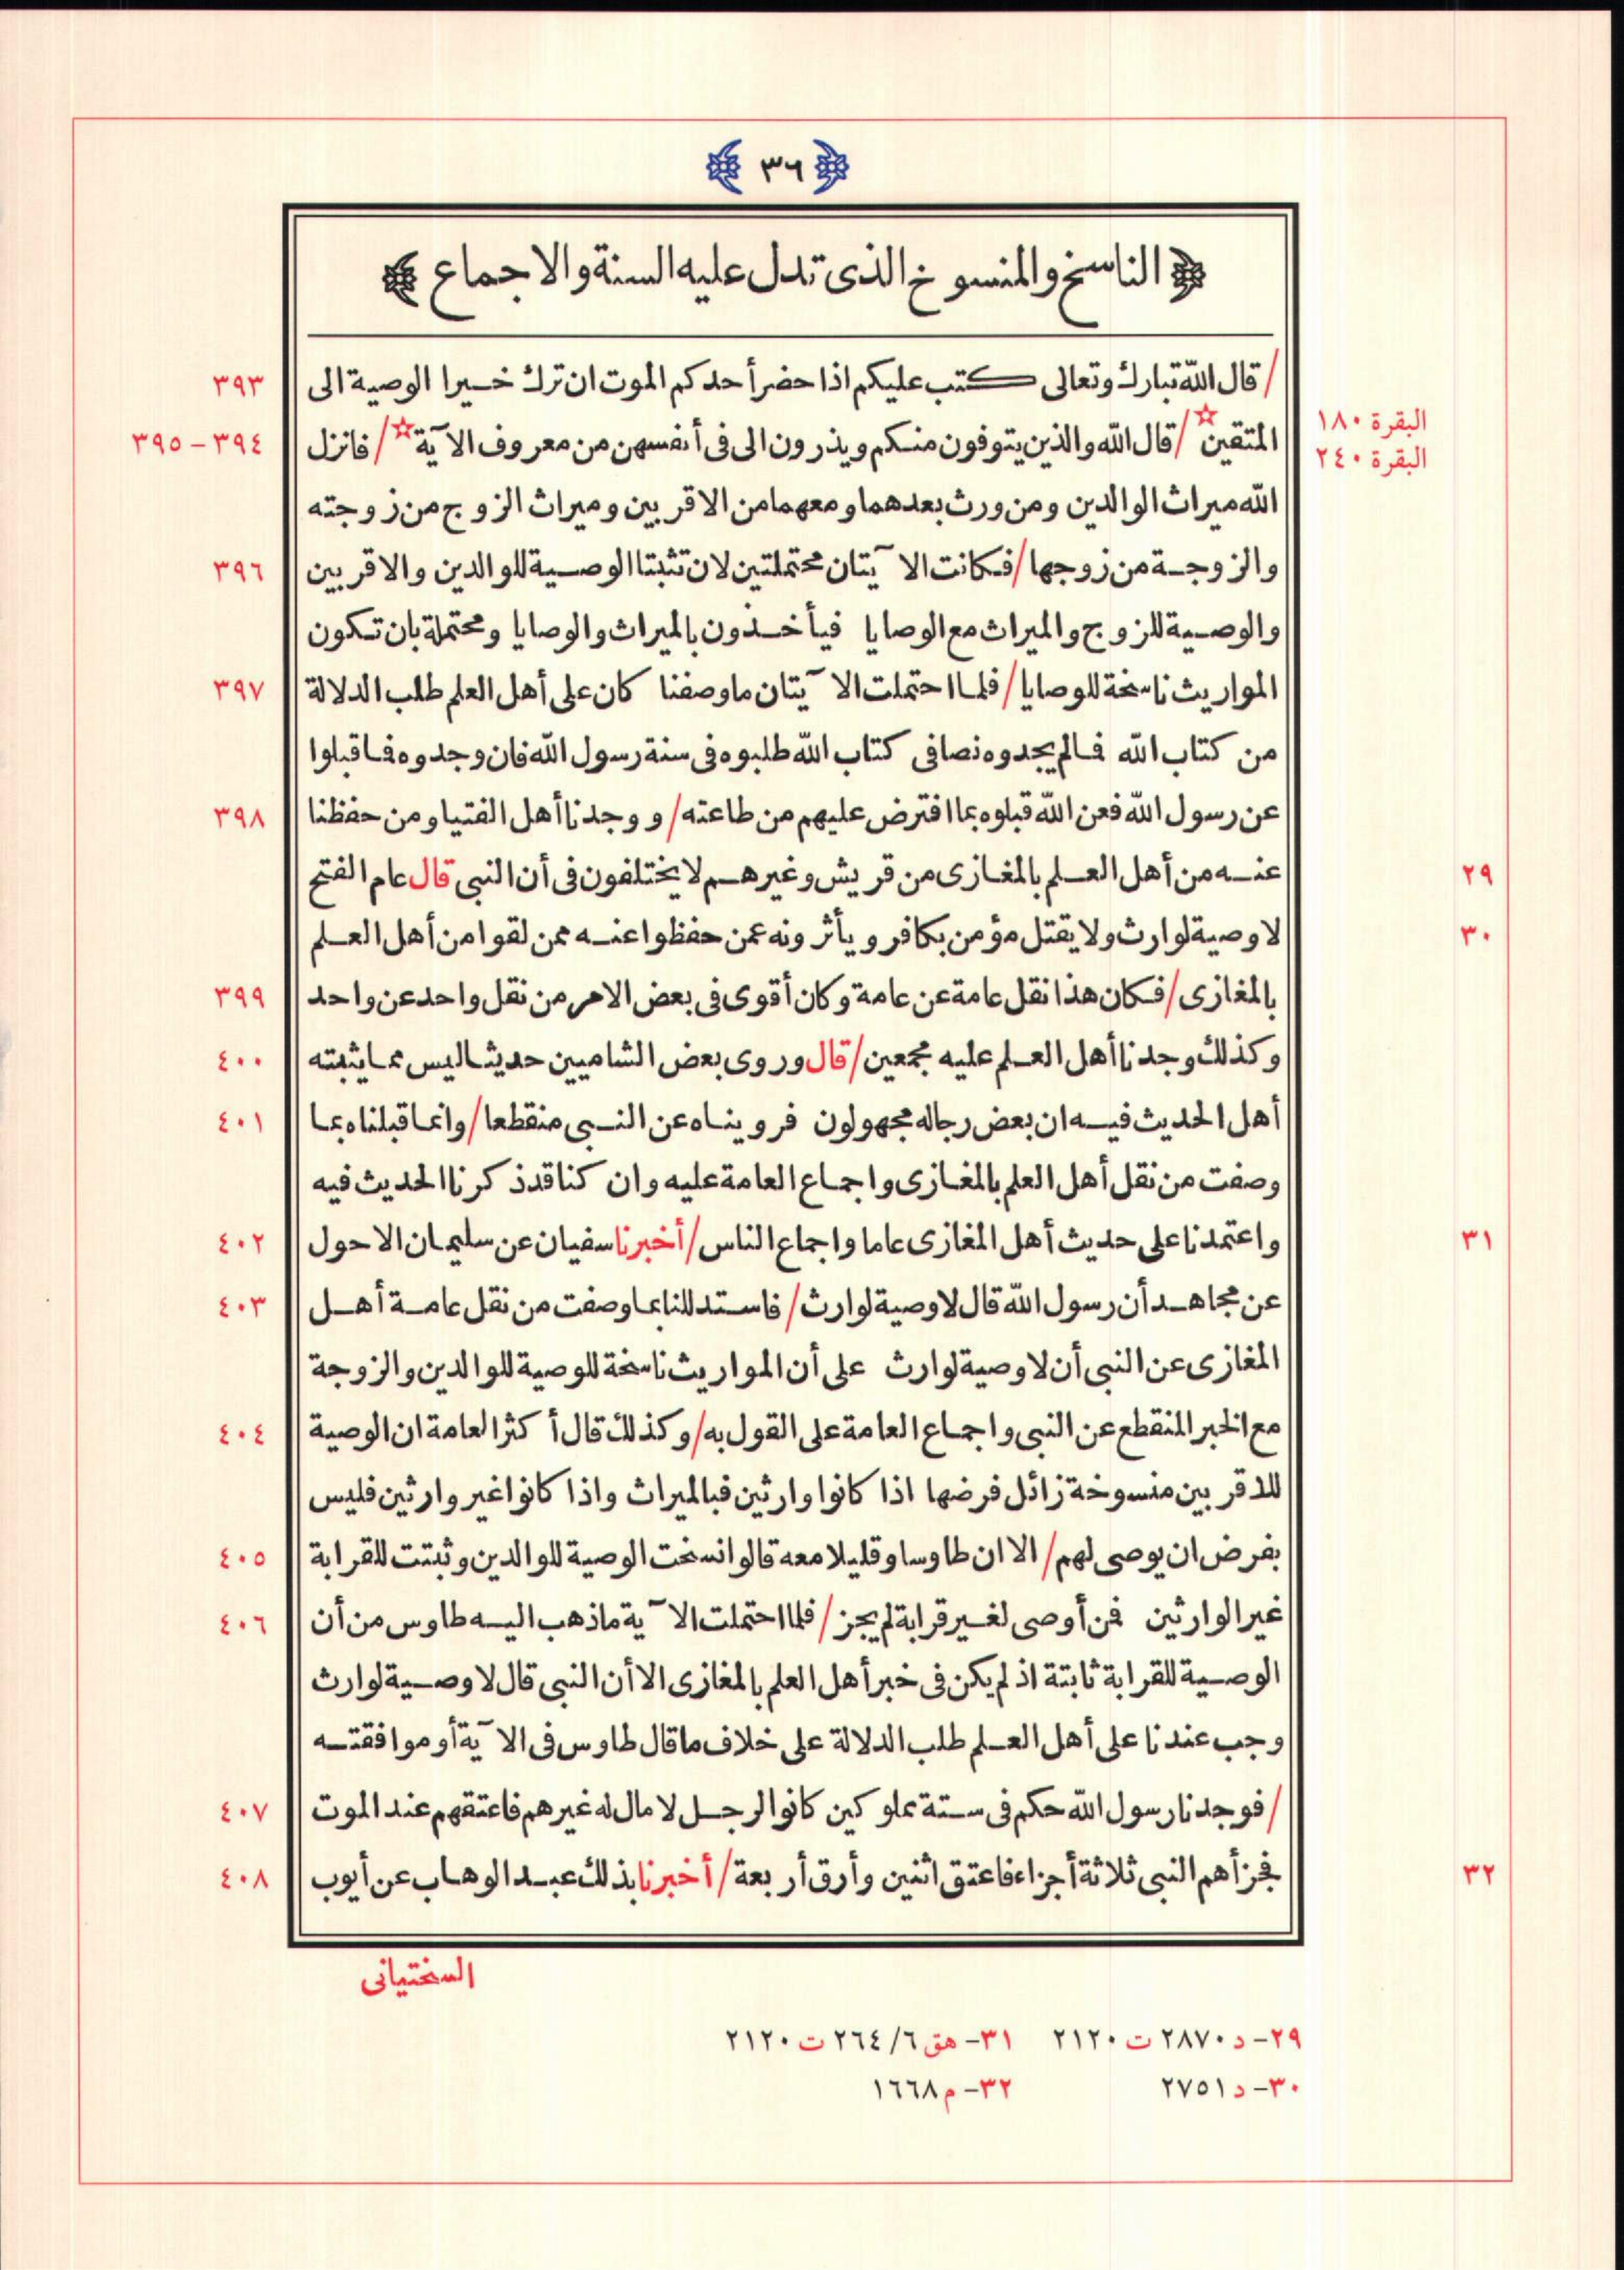 ﴿ ٣٦ ﴾
﴿ الناسخ والمنسوخ الذى تدل عليه السنة والاجماع ﴾
/قال الله تبارك وتعالى كتب عليكم اذا حضر أحدكم الموت ان ترك خيرا الوصية الى ٣٩٣
البقرة ١٨٠
المتقين☆/قال الله والذين يتوفون منكم ويذرون الى فى أنفسهن من معروف الآية☆/فانزل ٣٩٤-٣٩٥
البقرة ٢٤٠
الله ميراث الوالدين ومن ورث بعدهما ومعهما من الاقربين وميراث الزوج من زوجته
والزوجة من زوجها/فكانت الآيتان محتملتين لان تثبتا الوصية للوالدين والاقربين ٣٩٦
والوصية للزوج والميراث مع الوصايا فيأخذون بالميراث والوصايا ومحتملة بان تكون
المواريث ناسخة للوصايا/فلما احتملت الآيتان ماوصفنا كان على أهل العلم طلب الدلالة ٣٩٧
من كتاب الله فالم يجدوه نصا فى كتاب الله طلبوه فى سنة رسول الله فان وجدوه فاقبلوا
عن رسول الله فعن الله قبلوه بما افترض عليهم من طاعته/ووجدنا أهل الفتيا ومن حفظنا ٣٩٨
عنه من أهل العلم بالمغازى من قريش وغيرهم لا يختلفون فى أن النبى قال عام الفتح ٢٩
لاوصية لوارث ولا يقتل مؤمن بكافر ويأثرونه عمن حفظوا عنه ممن لقوا من أهل العلم ٣٠
بالمغازى/فكان هذا نقل عامة عن عامة وكان أقوى فى بعض الامر من نقل واحد عن واحد ٣٩٩
وكذلك وجدنا أهل العلم عليه مجمعين/قال وروى بعض الشاميين حديثا ليس مما يثبته ٤٠٠
أهل الحديث فيه ان بعض رجاله مجهولون فرويناه عن النبى منقطعا/وانما قبلناه بما ٤٠١
وصفت من نقل أهل العلم بالمغازى واجماع العامة عليه وان كنا قد ذكرنا الحديث فيه
واعتمدنا على حديث أهل المغازى عاما واجماع الناس/أخبرنا سفيان عن سليمان الاحول ٤٠٢ ٣١
عن مجاهد أن رسول الله قال لاوصية لوارث/فاستدللنا بما وصفت من نقل عامة أهل ٤٠٣
المغازى عن النبى أن لاوصية لوارث على أن المواريث ناسخة للوصية للوالدين والزوجة
مع الخبر المنقطع عن النبى واجماع العامة على القول به/وكذلك قال أكثر العامة ان الوصية ٤٠٤
للاقربين منسوخة زائل فرضها اذا كانوا وارثين فبالميراث واذا كانوا غير وارثين فليس
بفرض ان يوصى لهم/الا ان طاوسا وقليلا معه قالوا نسخت الوصية للوالدين وثبتت للقرابة ٤٠٥
غير الوارثين فمن أوصى لغير قرابة لم يجز/فلما احتملت الآية ماذهب اليه طاوس من أن ٤٠٦
الوصية للقرابة ثابتة اذ لم يكن فى خبر أهل العلم بالمغازى الا أن النبى قال لاوصية لوارث
وجب عندنا على أهل العلم طلب الدلالة على خلاف ماقال طاوس فى الآية أو موافقته
/فوجدنا رسول الله حكم فى ستة مملوكين كانوا لرجل لا مال له غيرهم فاعتقهم عند الموت ٤٠٧
فجزأهم النبى ثلاثة أجزاء فاعتق اثنين وأرق أربعة/أخبرنا بذلك عبد الوهاب عن أيوب ٤٠٨ ٣٢
السختيانى
٢٩- د ٢٨٧٠ ت ٢١٢٠ ٣١- هق ٢٦٤/٦ ت ٢١٢٠
٣٠- د ٢٧٥١ ٣٢- م ١٦٦٨